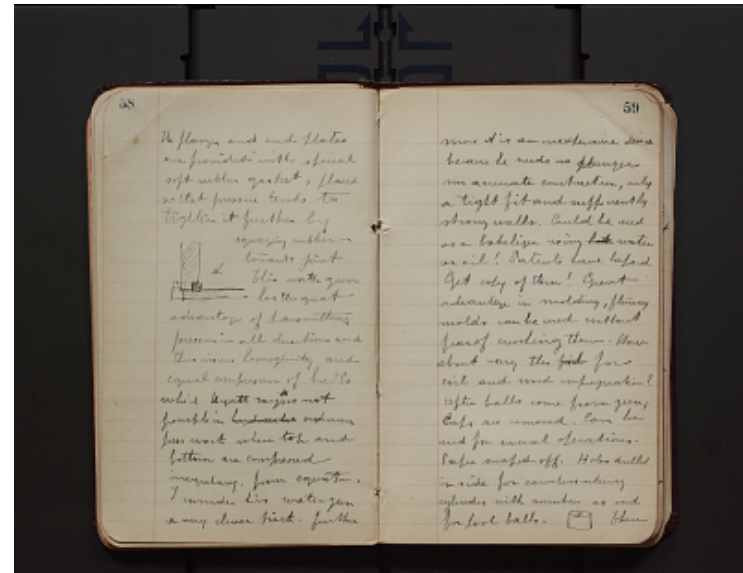 58
The flanges and end plates
are provided with special
soft rubber gasket, placed
so that pressure tends to
tighten it further by
squeezing rubber
towards joint
This water gun
has the great
advantage of transmitting
pressure in all directions and
thus insures homogenity and
equal compression of balls
which Hyatt says is not
possible in hydraulic ordinary
press work where top and
bottom are compressed
irregularly from equator.
I consider his water gun
a very clever trick. further
59
more it is an inexpensive device
because he needs no plunger
nor accurate construction, only
a tight fit and sufficiently
strong walls. Could be used
as a bakelizer using hot water
or oil! Patents have lapsed
Get copy of them! Great
advantage in molding, flimsy
molds can be used without
fear of crushing them. How
about using this for
coil and wood impregnation?
After balls come from gun,
Caps are removed. Can be
used for several operations.
Paper snaped off. Holes drilled
in side for countersinking
cylinder with number as used
for pool balls. These